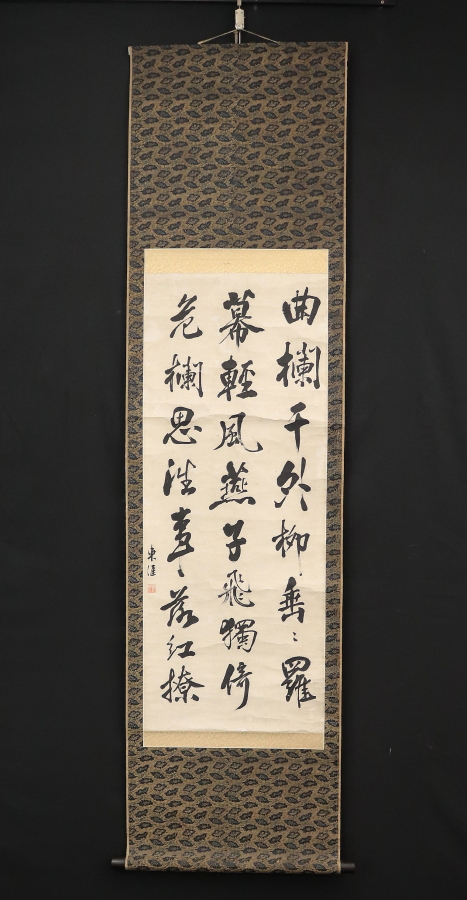 曲欄干外柳垂ゝ羅
幕輕風燕子飛獨倚
危欄思往事ゝ落紅撩
東涯